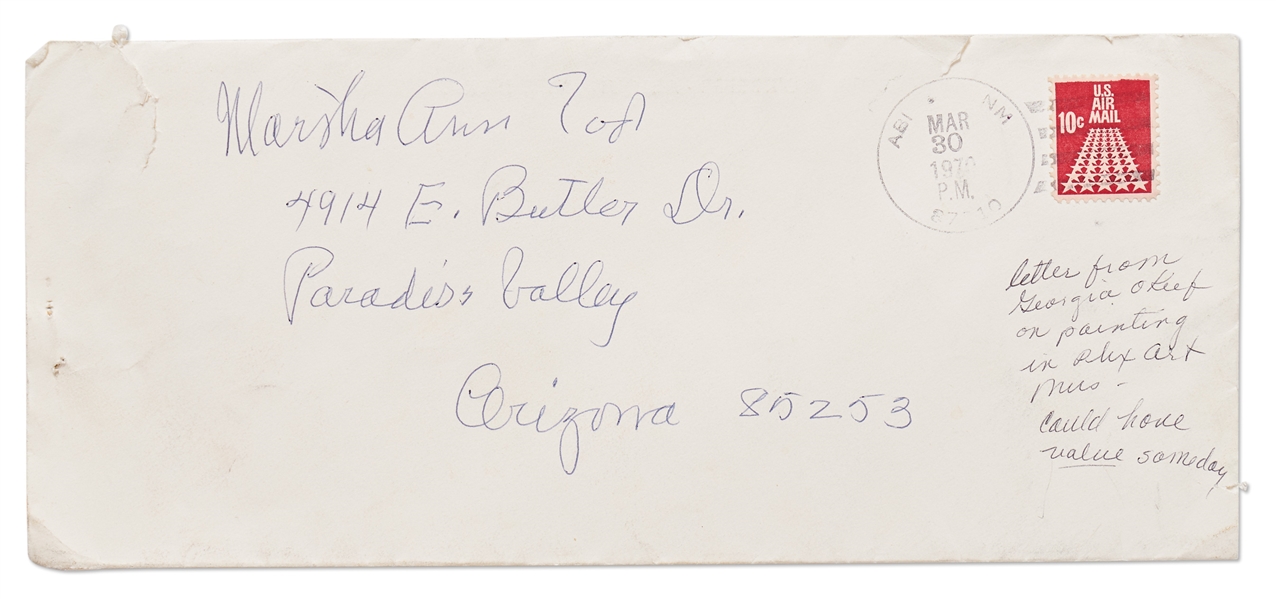 Marsha Ann
4914 E. Butler Dr.
Paradise Valley
Arizona 85253
ABI NM
MAR
30
P.M.
U.S.
AIR
MAIL
10c
letter from
Georgia OKeef
on painting
in Phx Art
Mus -
could have
value someday